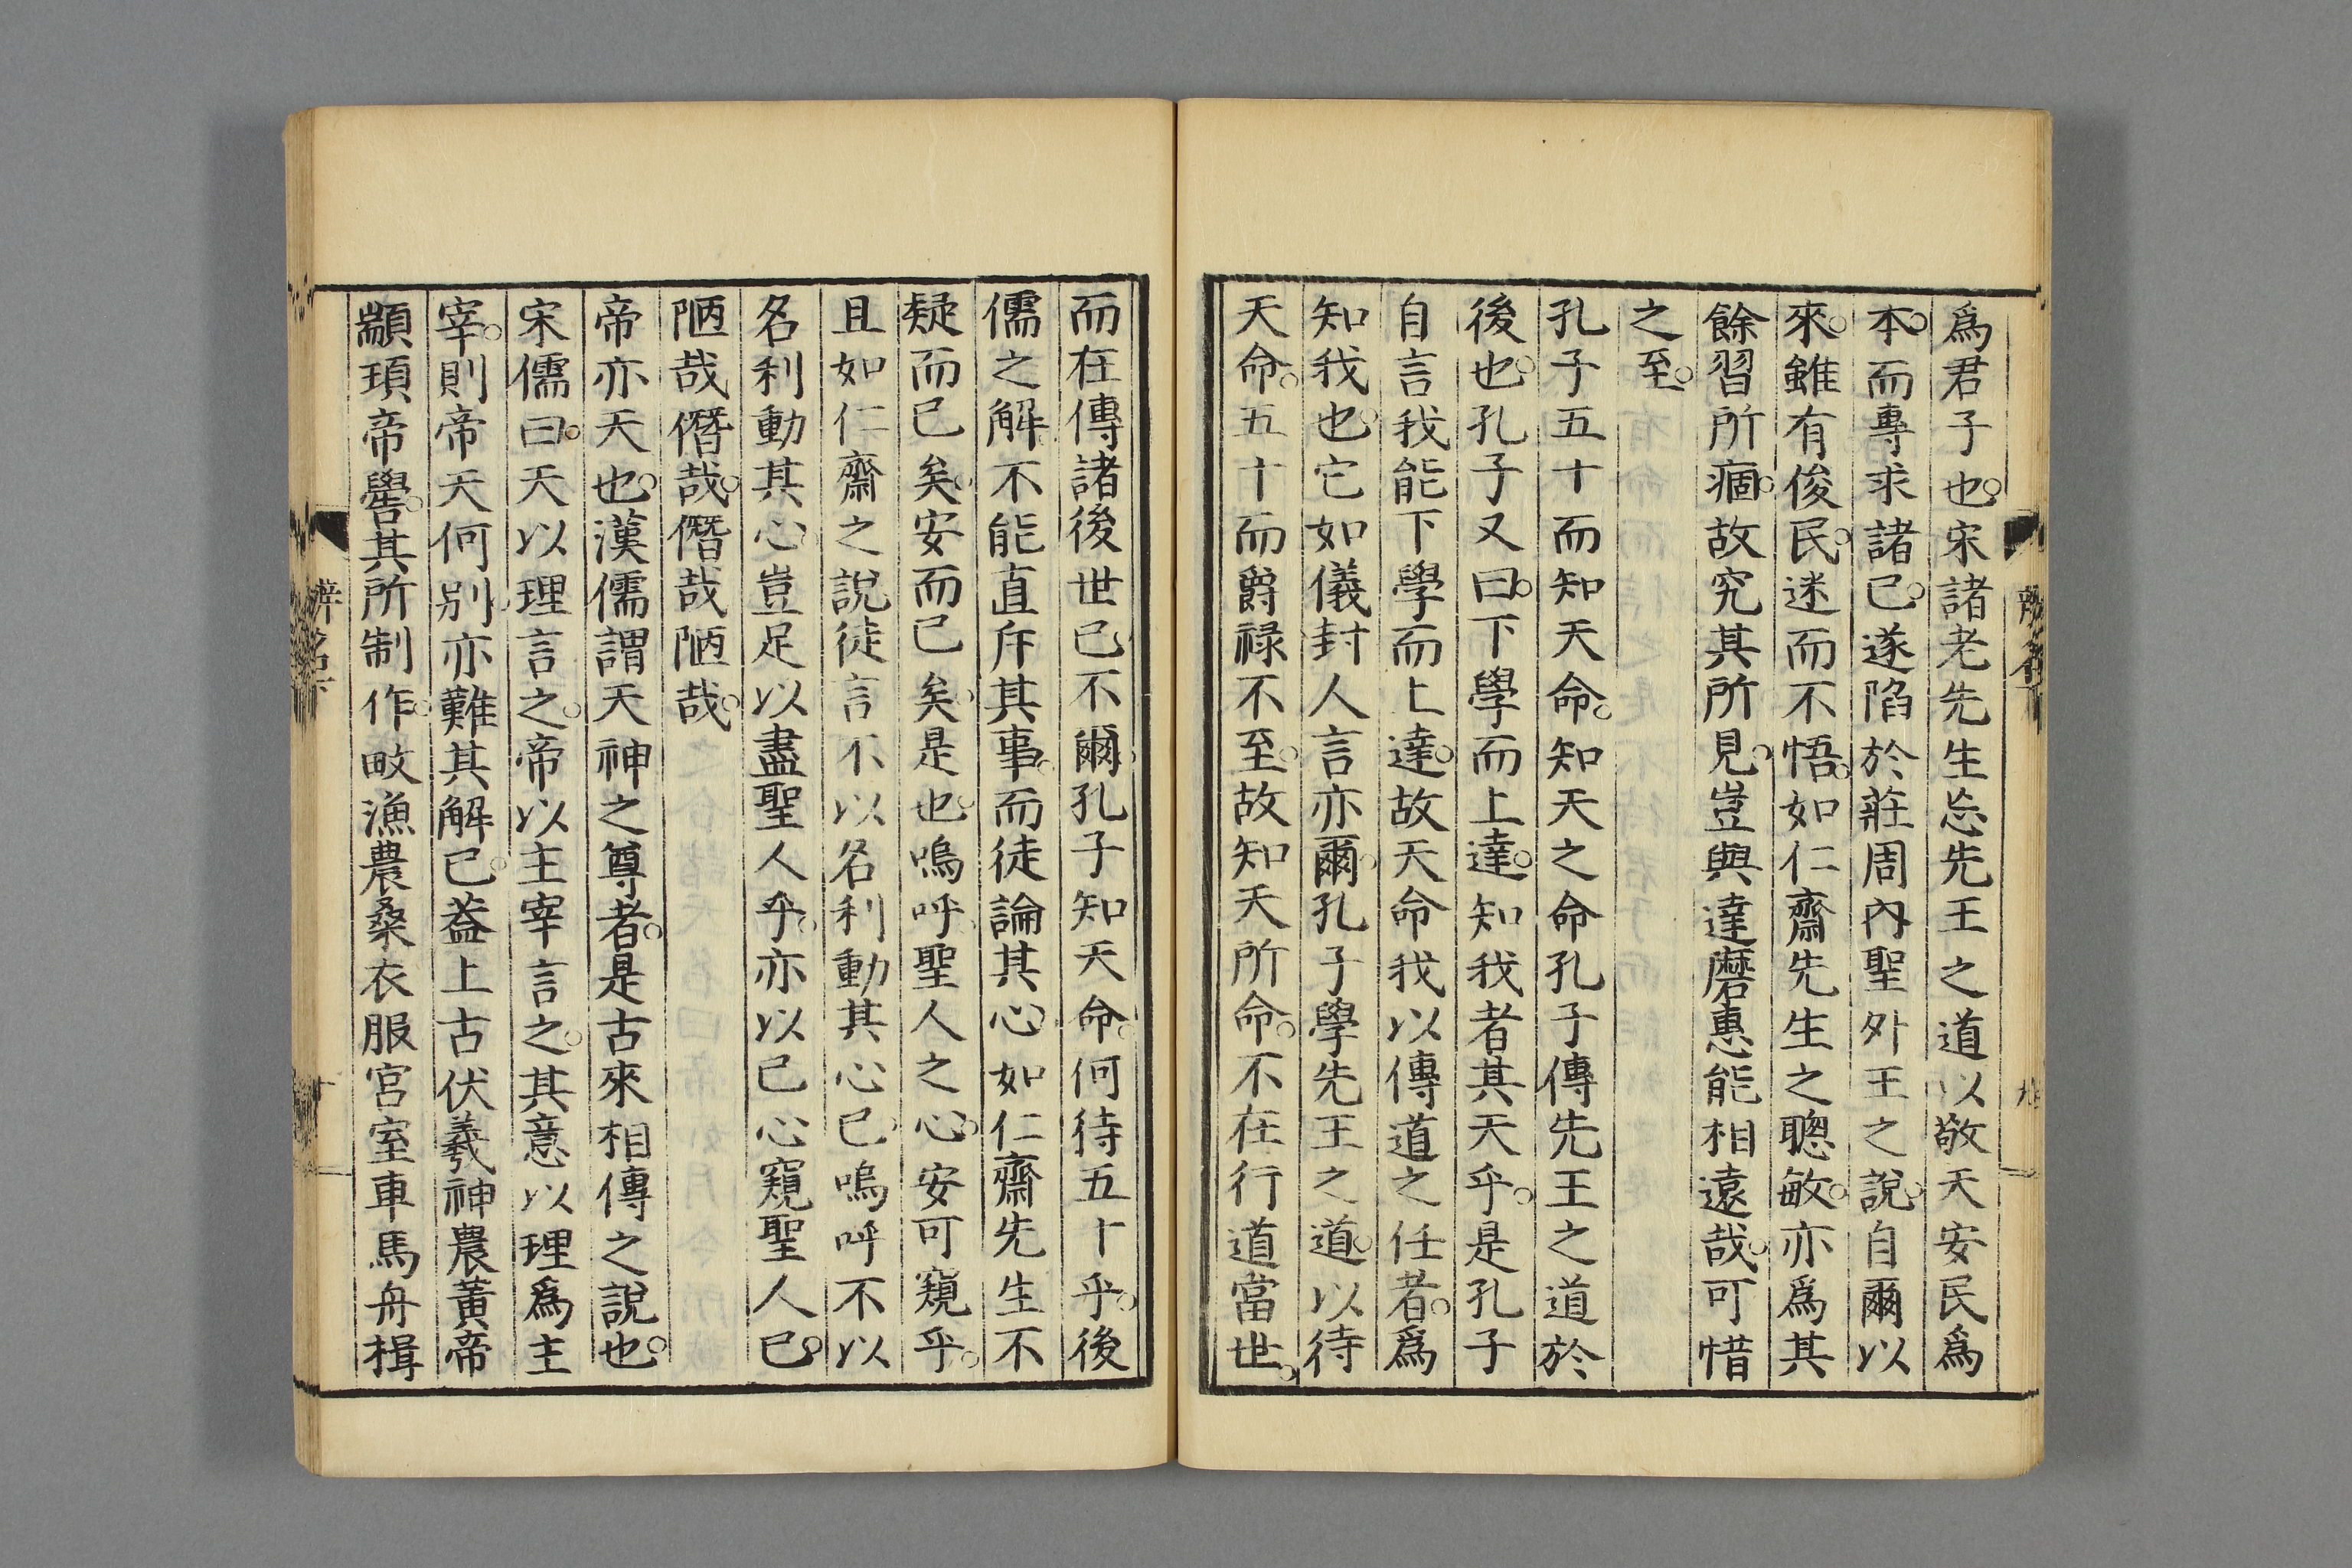 爲君子也。宋諸老先生忘先王之道以敬天安民爲
本。而專求諸己。遂陷於莊周內聖外王之說。自爾以
來。雖有俊民。迷而不悟。如仁齋先生之聰敏。亦爲其
餘習所痼。故究其所見。豈與達磨惠能相遠哉。可惜
之至。
孔子五十而知天命。知天之命孔子傳先王之道於
後也。孔子又曰。下學而上達。知我者其天乎。是孔子
自言我能下學而上達。故天命我以傳道之任者。爲
知我也。它如儀封人言亦爾。孔子學先王之道。以待
天命。五十而爵祿不至。故知天所命。不在行道當世。
而在傳諸後世已。不爾。孔子知天命。何待五十乎。後
儒之解。不能直斥其事。而徒論其心。如仁齋先生不
疑而已矣。安而已矣。是也。嗚呼。聖人之心。安可窺乎。
且如仁齋之說。徒言不以名利動其心已。嗚呼不以
名利動其心。豈足以盡聖人乎。亦以己心窺聖人已。
陋哉僭哉。僭哉陋哉。
帝亦天也。漢儒謂天神之尊者。是古來相傳之說也。
宋儒曰。天以理言之。帝以主宰言之。其意以理爲主
宰。則帝天何別。亦難其解已。蓋上古伏羲神農黃帝
顓頊帝嚳。其所制作。畋漁農桑衣服宮室車馬舟楫
辨名下